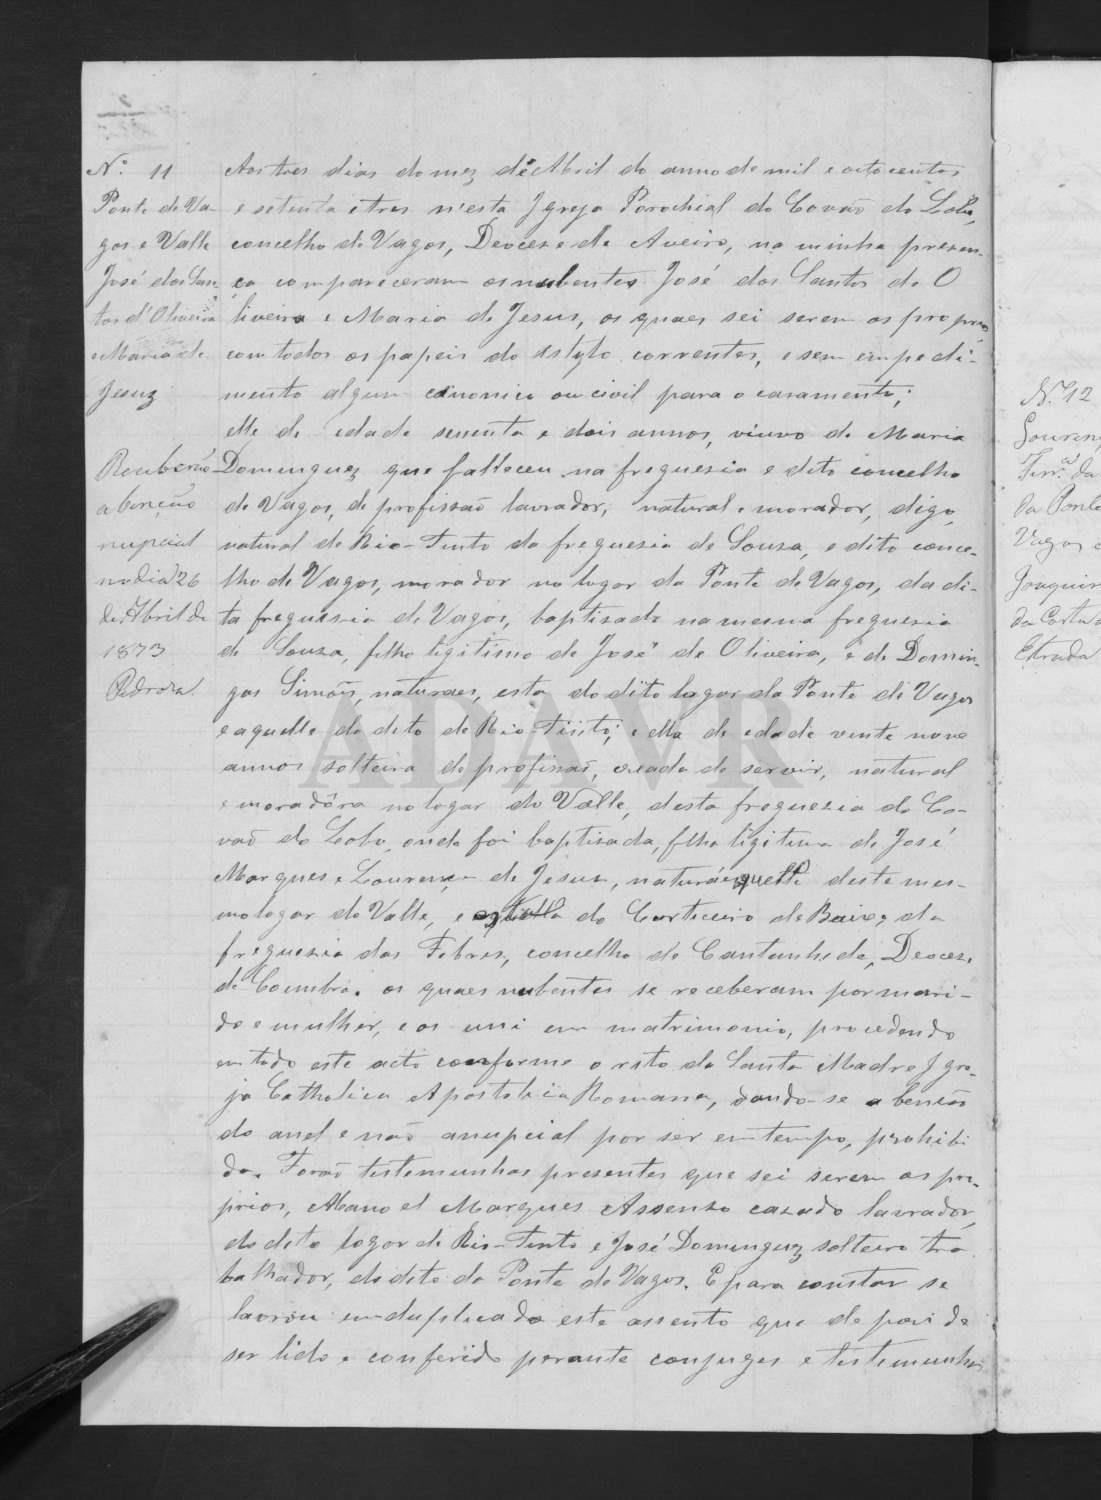 N.º 11
Ponte de Va-
gos e Valle
José dos San-
tos d'Oliveira
e Maria de
Jesuz
Receberão
a benção
nupcial
no dia 26
de Abril de
1873
Pedroza
Aos tres dias do mez de Abril do anno de mil e oitocentos
e setenta e tres n'esta Igreja Parochial do Covão do Lobo,
concelho de Vagos, Deocese de Aveiro, na minha presen-
ça compareceram os nubentes José dos Santos de O
liveira e Maria de Jesus, os quaes sei serem os proprios,
com todos os papeis do estylo correntes, e sem empedi-
mento algum canonico ou civil para o casamento;
elle de edade sesenta e dois annos, viuvo de Maria
Domingues que falleceu na freguesia e dito concelho
de Vagos, de profissaõ lavrador, natural e morador, digo,
natural de Rio-Tinto da freguesia de Souza, e dito conce-
lho de Vagos, morador no logar da Ponte de Vagos, da di-
ta freguesia de Vagos, baptisado na mesma freguesia
de Souza, filho ligitimo de José de Oliveira, e de Domin-
gas Simões, naturaes, esta do dito logar da Ponte de Vagos
e aquelle do dito de Rio-Tinto; e ella de edade vente nove
annos solteira de profissaõ, creada de servir, natural
e moradôra no logar do Valle, desta freguezia do Co-
vaõ do Lobo, onde foi baptisada, filha ligitima de José
Marques e Lourença de Jesus, naturáes, aquelle deste mes-
mo logar do Valle, e esta do Corticeiro de Baixo, da
freguezia das Febres, concelho de Cantanhede, Deocese
de Coimbra. os quaes nubentes se receberam por mari-
do e mulher, e os uni em matrimonio, procedendo
em todo este acto conforme o rito da Santa Madre Igre-
ja Catholica Apostolica Romana, dando-se a bençaõ
do anel e naõ a nupcial por ser em tempo, prohibi
do. Foraõ testemunhas presentes que sei serem os pro-
prios, Manoel Marques Assenso casado lavrador,
do dito logar de Rio-Tinto e José Dominguez solteiro tra
balhador, do dito da Ponte de Vagos. E para constar se
lavrou em duplicado este assento que depois de
ser lido e conferido perante conjuges e testemunhas
ADAVR
N.º 12
Louren
Ferr.ª da
da Ponte
Vagos e
Joaquin
da Costa
Estrada